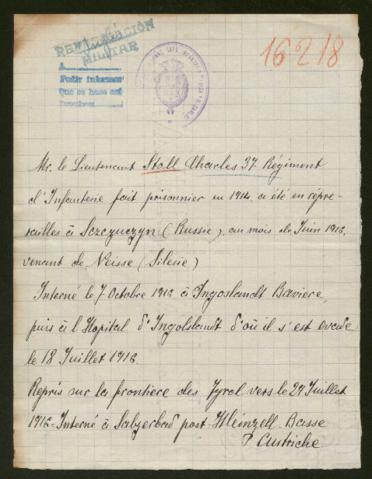 REPATRIACIÓN
MILITAR
A
Pedir informes
Que se hace así
16218
Mr. le Lieutenant Stoll Charles 37 Régiment
d'Infanterie fait prisonnier en 1914 a été en repré-
sailles à Sczczuczyn (Russie), au mois de Juin 1916,
venant de Neisse (Silésie)
Interné le 7 Octobre 1916 à Ingoslandt Bavière,
puis à l'Hopital d'Ingolstandt d'où il s'est évadé
le 18 Juillet 1918
Repris sur la frontière des Tyrol vers le 27 Juillet
1918 - Interné à Salzerbad post Kleinzell Basse
Autriche